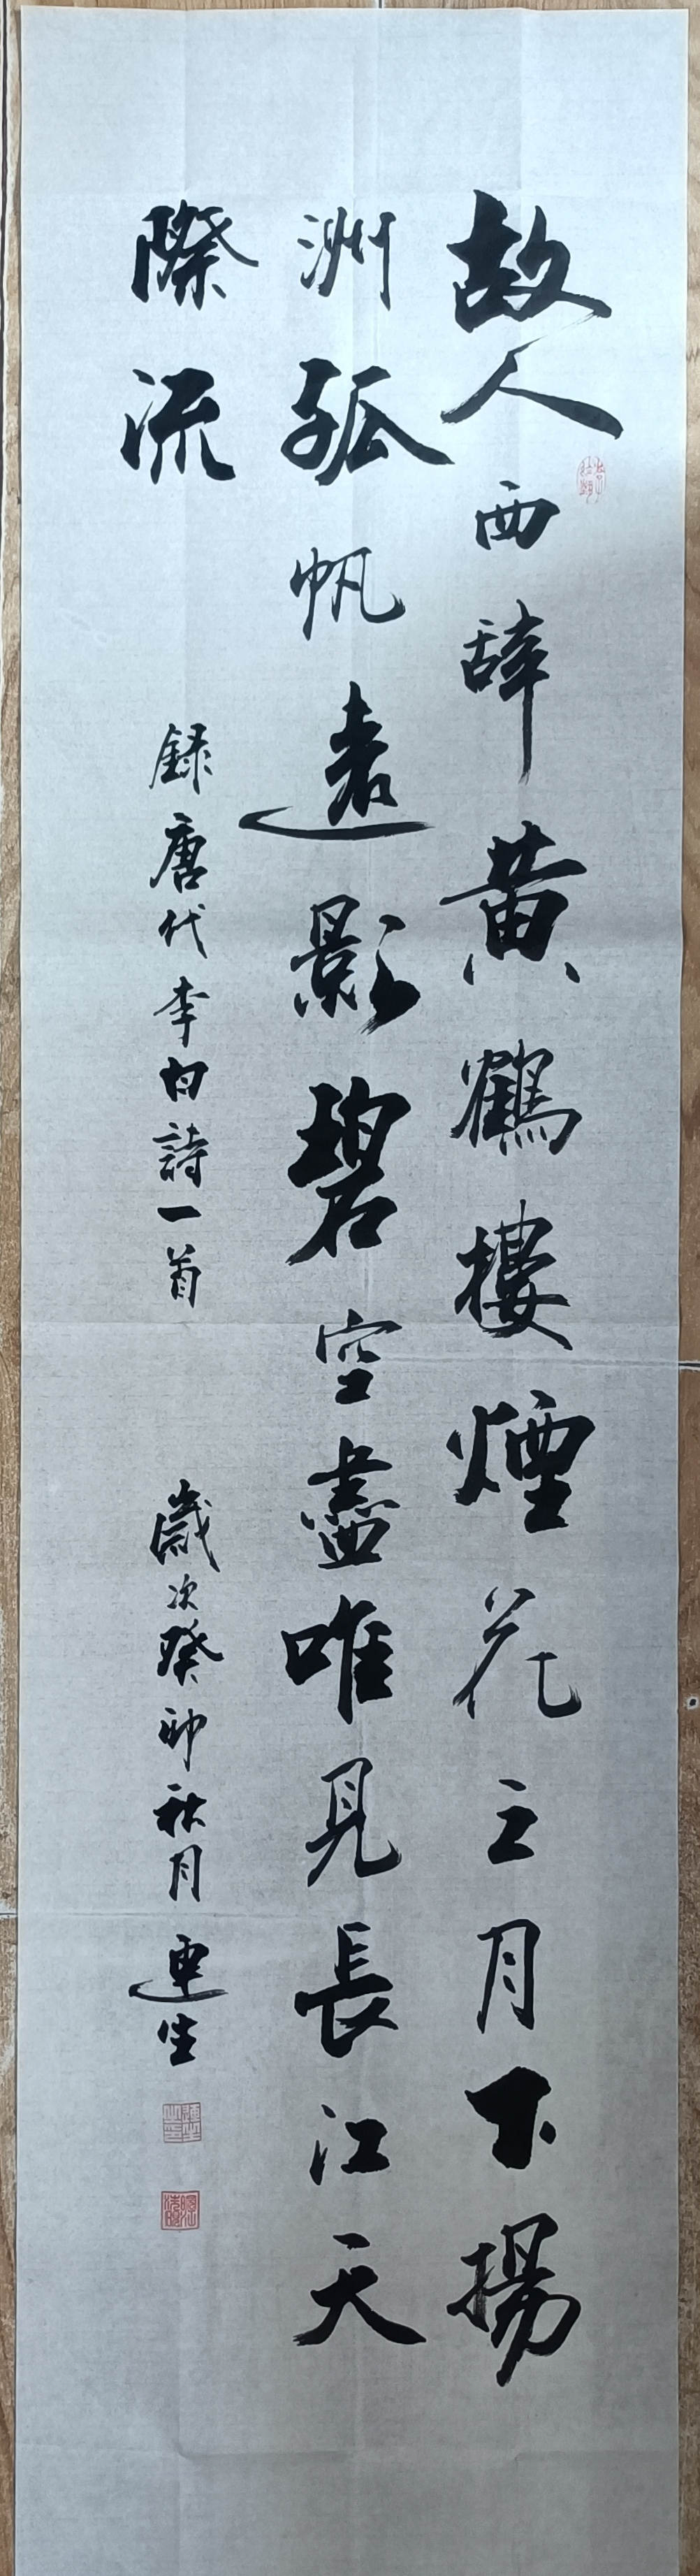 故人西辞黄鶴樓煙花三月下揚
洲孤帆遠影碧空盡唯見長江天
際流
録唐代李白詩一首 歲次癸卯秋月 連生